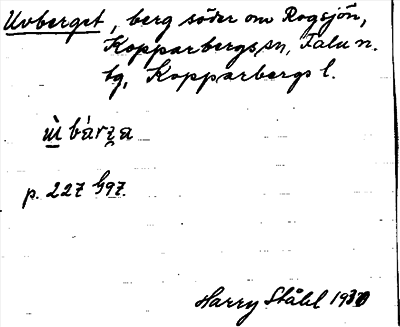 Uvberget, berg söder om Rogsjön,
Kopparbergs sn, Falu n.
tg, Kopparbergs l.
p. 227
Harry Ståhl 1930